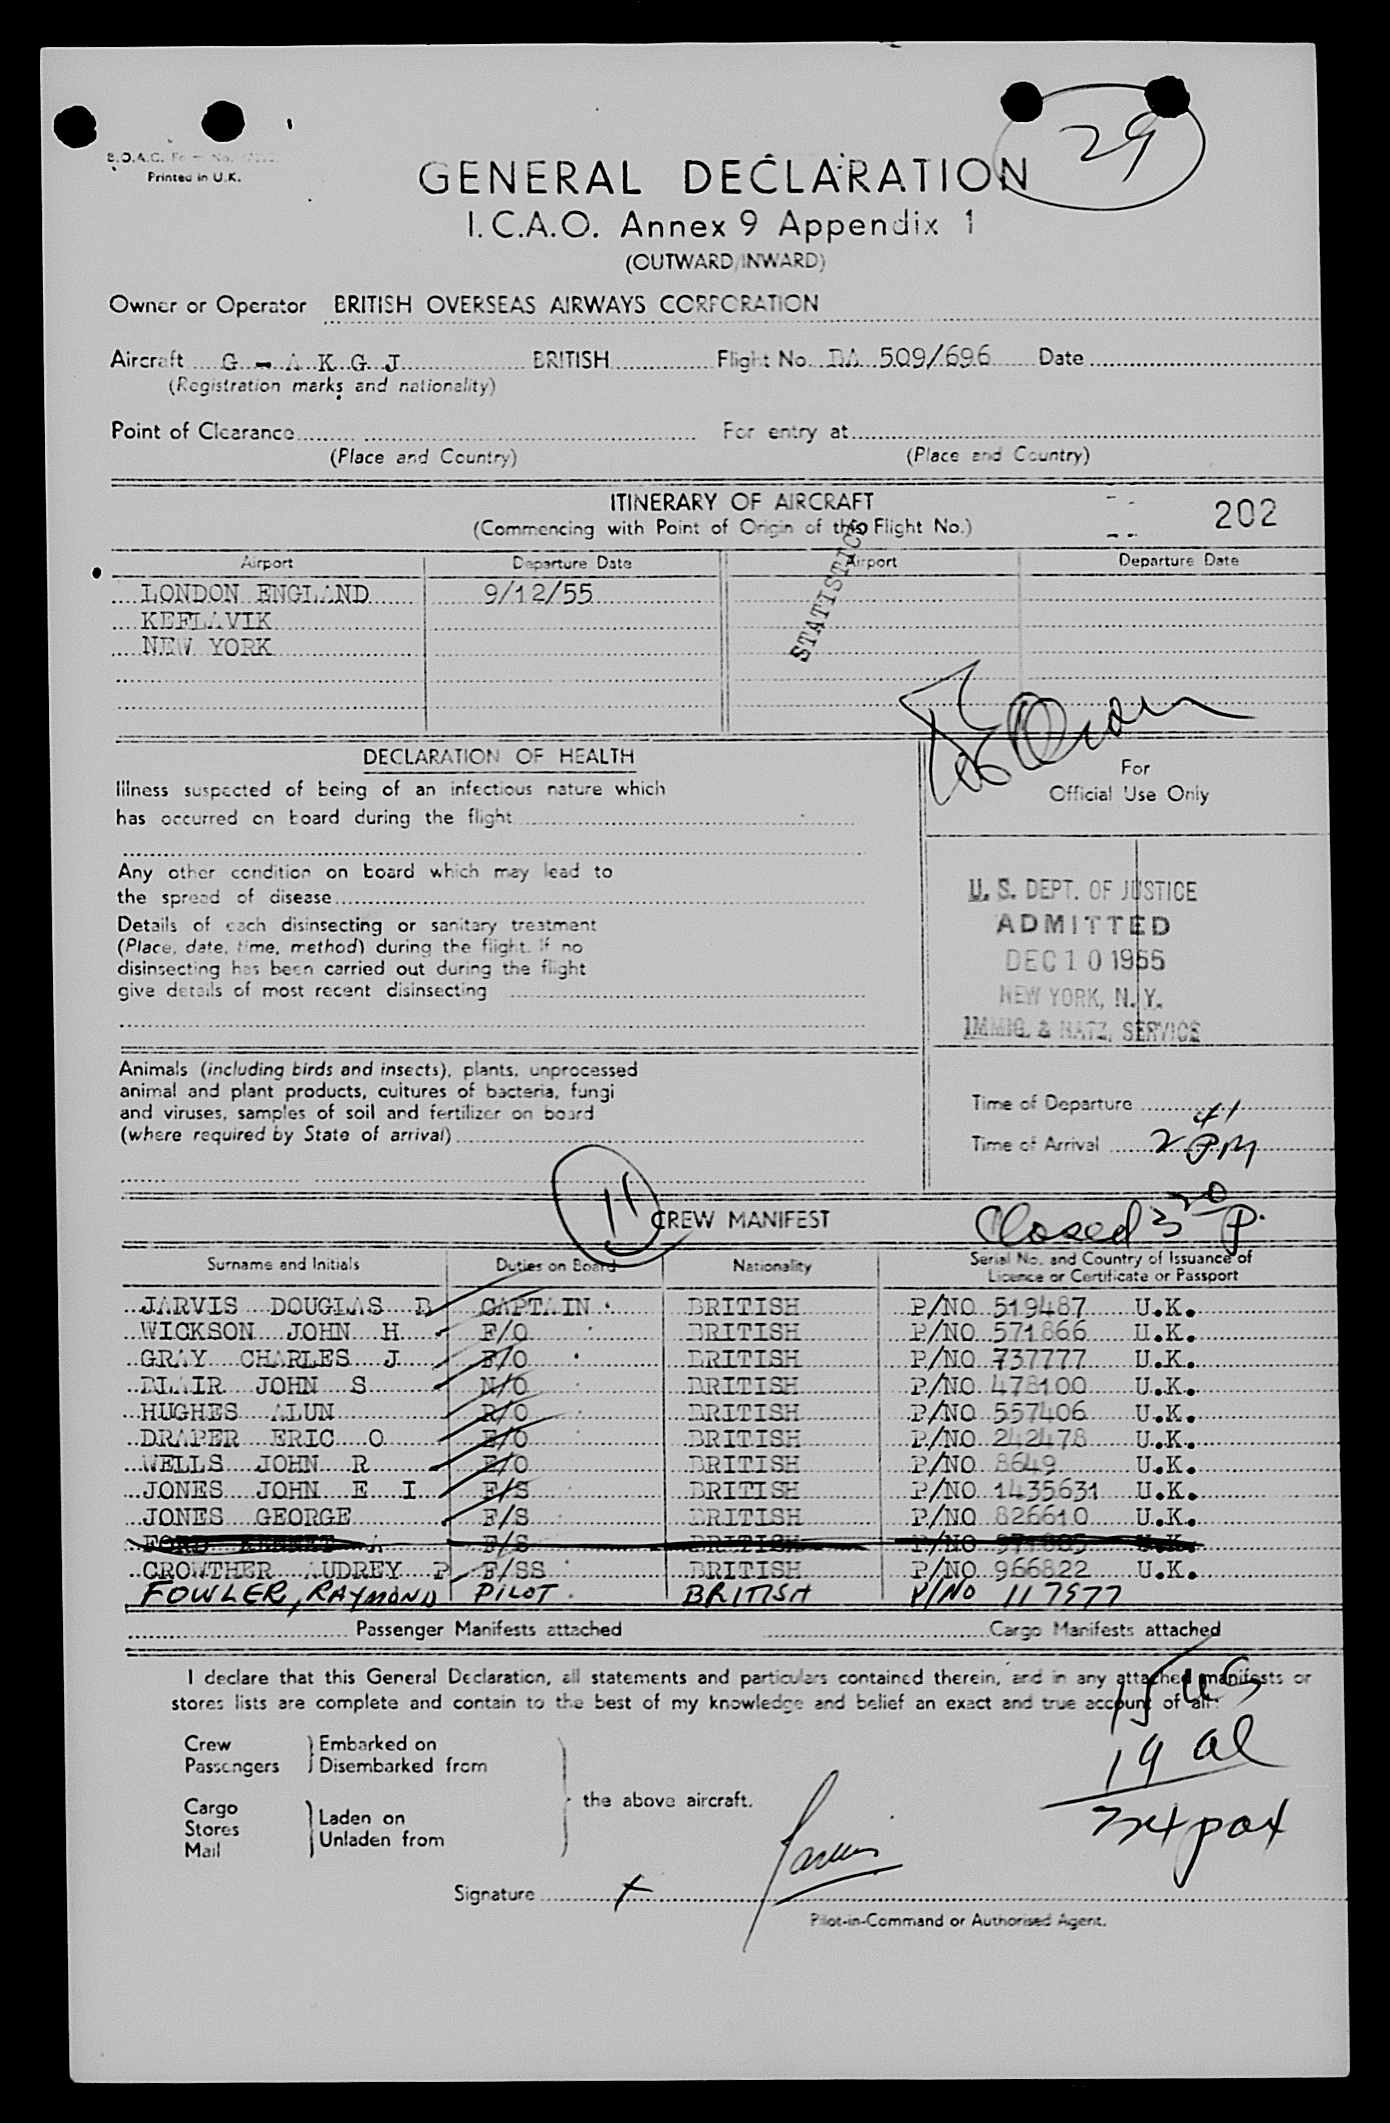 29
Printed in U.K.
GENERAL DECLARATION
I.C.A.O. Annex 9 Appendix 1
(OUTWARD/INWARD)
Owner or Operator BRITISH OVERSEAS AIRWAYS CORPORATION
Aircraft G - A K G J BRITISH Flight No. BA 509/696 Date
(Registration marks and nationality)
Point of Clearance For entry at
(Place and Country) (Place and Country)
ITINERARY OF AIRCRAFT
202
(Commencing with Point of Origin of this Flight No.)
STATISTICS
Airport Departure Date Airport Departure Date
LONDON ENGLAND 9/12/55
KEFLAVIK
NEW YORK
DECLARATION OF HEALTH
For
Official Use Only
Illness suspected of being of an infectious nature which
has occurred on board during the flight
Any other condition on board which may lead to
the spread of disease
Details of each disinsecting or sanitary treatment
(Place, date, time, method) during the flight. If no
disinsecting has been carried out during the flight
give details of most recent disinsecting
U. S. DEPT. OF JUSTICE
ADMITTED
DEC 10 1955
NEW YORK, N. Y.
IMMIG. & NATZ. SERVICE
Animals (including birds and insects), plants, unprocessed
animal and plant products, cultures of bacteria, fungi
and viruses, samples of soil and fertilizer on board
(where required by State of arrival)
Time of Departure
Time of Arrival 2 41 PM
11
CREW MANIFEST
Closed 3 20 P.
Surname and Initials Duties on Board Nationality Serial No. and Country of Issuance of
Licence or Certificate or Passport
JARVIS DOUGLAS D CAPTAIN BRITISH P/NO 519487 U.K.
WICKSON JOHN H F/O BRITISH P/NO 571866 U.K.
GRAY CHARLES J F/O BRITISH P/NO 737777 U.K.
BLAIR JOHN S N/O BRITISH P/NO 478100 U.K.
HUGHES ALUN R/O BRITISH P/NO 557406 U.K.
DRAPER ERIC O E/O BRITISH P/NO 242478 U.K.
WELLS JOHN R E/O BRITISH P/NO 8649 U.K.
JONES JOHN E I F/S BRITISH P/NO 1435631 U.K.
JONES GEORGE F/S BRITISH P/NO 826610 U.K.
FORD A F/S BRITISH P/NO U.K.
CROWTHER AUDREY P F/SS BRITISH P/NO 966822 U.K.
FOWLER, RAYMOND PILOT BRITISH P/NO 117977
Passenger Manifests attached Cargo Manifests attached
I declare that this General Declaration, all statements and particulars contained therein, and in any attached manifests or
stores lists are complete and contain to the best of my knowledge and belief an exact and true account of all:
15 US
19 al
34 pax
Crew Embarked on
Passengers Disembarked from
the above aircraft.
Cargo
Stores Laden on
Mail Unladen from
Signature x Jarvis
Pilot-in-Command or Authorised Agent.